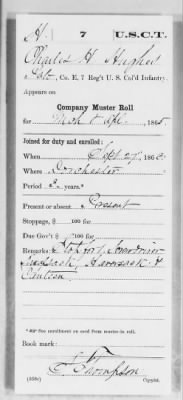 H 7 U.S.C.T.
Charles H Hughes
Co. E, 7 Reg't U. S. Col'd Infantry.
Appears on
Company Muster Roll
for Mch & Apl, 1865
Joined for duty and enrolled:
When Sept 27, 1863
Where Dorchester
Period 3 years.*
Present or absent Present
Stoppage, $ 100 for
Due Gov't $ 100 for
Remarks: Stop for 1 Screwdriver
Knapsack, Haversack &
Canteen
*See enrollment on card from muster-in roll.
Book mark:
Thompson
(358c) Copyist.